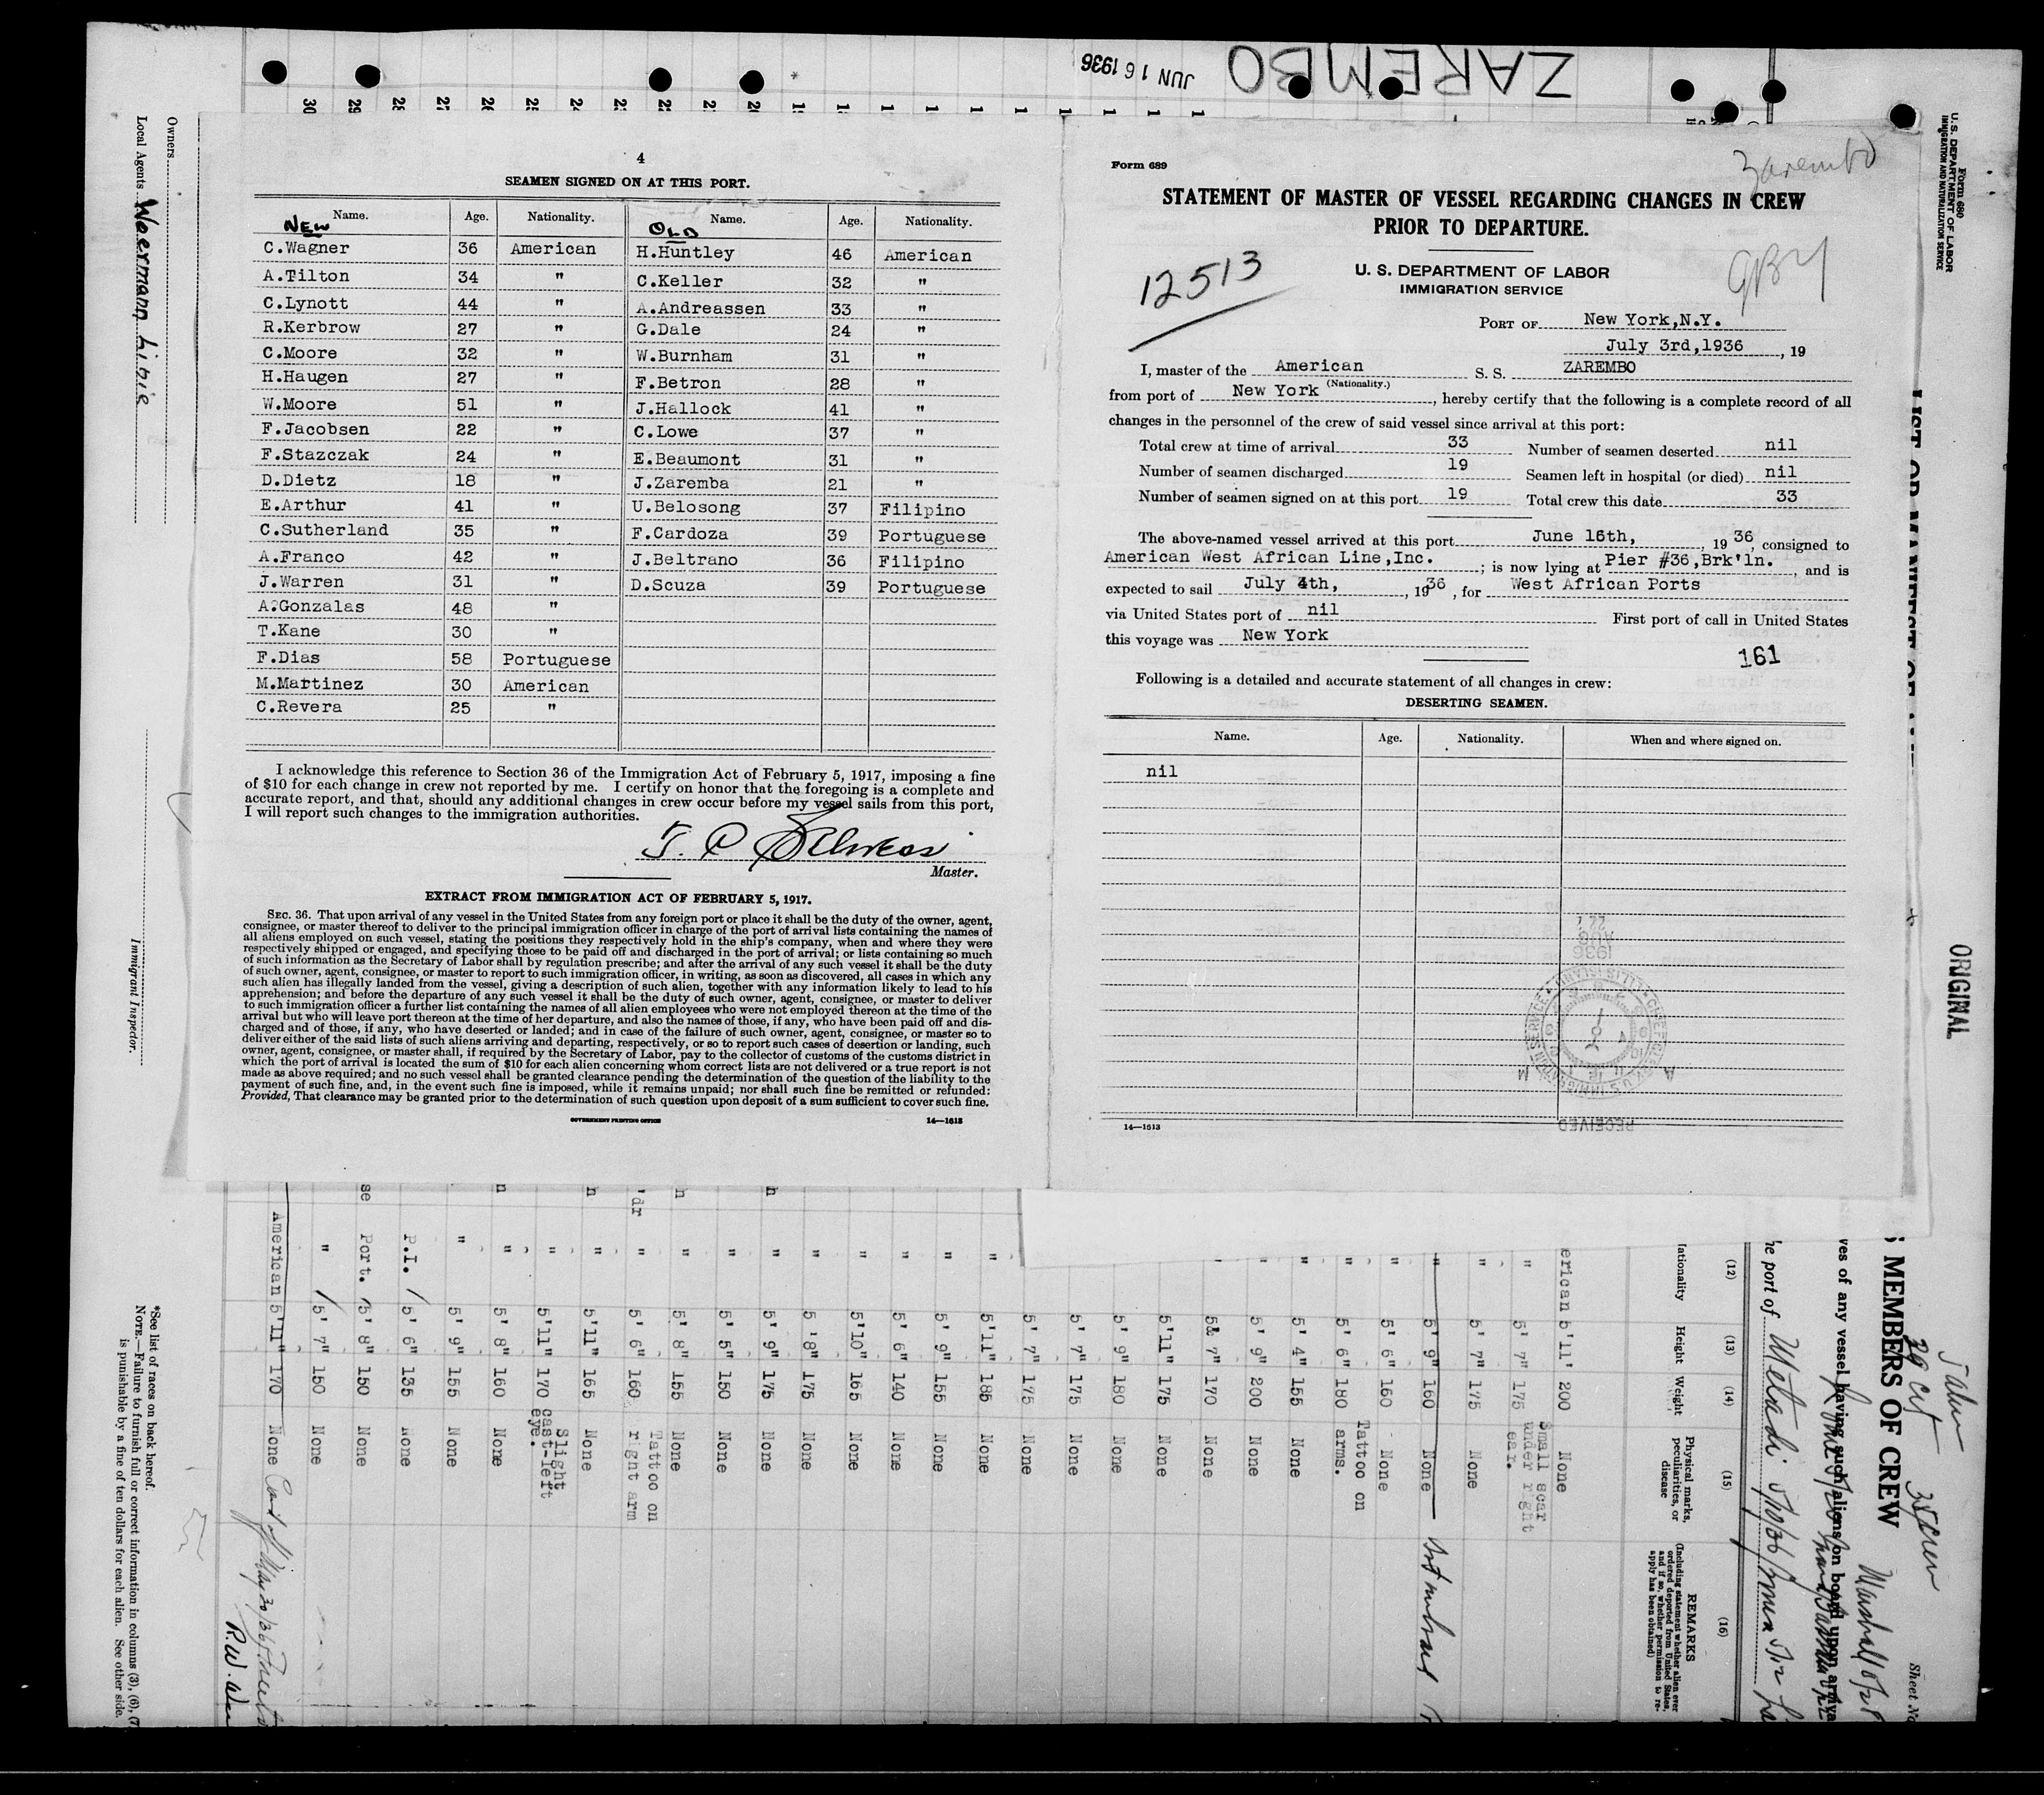 ZAREMBO
JUN 16 1936
Owners
Local Agents Woermann Linie
Immigrant Inspector.
4
SEAMEN SIGNED ON AT THIS PORT.
Name. Age. Nationality. Name. Age. Nationality.
NEW OLD
C.Wagner 36 American H.Huntley 46 American
A.Tilton 34 " C.Keller 32 "
C.Lynott 44 " A.Andreassen 33 "
R.Kerbrow 27 " G.Dale 24 "
C.Moore 32 " W.Burnham 31 "
H.Haugen 27 " F.Betron 28 "
W.Moore 51 " J.Hallock 41 "
F.Jacobsen 22 " C.Lowe 37 "
F.Stazczak 24 " E.Beaumont 31 "
D.Dietz 18 " J.Zaremba 21 "
E.Arthur 41 " U.Belosong 37 Filipino
C.Sutherland 35 " F.Cardoza 39 Portuguese
A.Franco 42 " J.Beltrano 36 Filipino
J.Warren 31 " D.Scuza 39 Portuguese
A.Gonzalas 48 "
T.Kane 30 "
F.Dias 58 Portuguese
M.Martinez 30 American
C.Revera 25 "
I acknowledge this reference to Section 36 of the Immigration Act of February 5, 1917, imposing a fine
of $10 for each change in crew not reported by me. I certify on honor that the foregoing is a complete and
accurate report, and that, should any additional changes in crew occur before my vessel sails from this port,
I will report such changes to the immigration authorities.
Master.
EXTRACT FROM IMMIGRATION ACT OF FEBRUARY 5, 1917.
SEC. 36. That upon arrival of any vessel in the United States from any foreign port or place it shall be the duty of the owner, agent,
consignee, or master thereof to deliver to the principal immigration officer in charge of the port of arrival lists containing the names of
all aliens employed on such vessel, stating the positions they respectively hold in the ship's company, when and where they were
respectively shipped or engaged, and specifying those to be paid off and discharged in the port of arrival; or lists containing so much
of such information as the Secretary of Labor shall by regulation prescribe; and after the arrival of any such vessel it shall be the duty
of such owner, agent, consignee, or master to report to such immigration officer, in writing, as soon as discovered, all cases in which any
such alien has illegally landed from the vessel, giving a description of such alien, together with any information likely to lead to his
apprehension; and before the departure of any such vessel it shall be the duty of such owner, agent, consignee, or master to deliver
to such immigration officer a further list containing the names of all alien employees who were not employed thereon at the time of the
arrival but who will leave port thereon at the time of her departure, and also the names of those, if any, who have been paid off and dis-
charged and of those, if any, who have deserted or landed; and in case of the failure of such owner, agent, consignee, or master so to
deliver either of the said lists of such aliens arriving and departing, respectively, or so to report such cases of desertion or landing, such
owner, agent, consignee, or master shall, if required by the Secretary of Labor, pay to the collector of customs of the customs district in
which the port of arrival is located the sum of $10 for each alien concerning whom correct lists are not delivered or a true report is not
made as above required; and no such vessel shall be granted clearance pending the determination of the question of the liability to the
payment of such fine, and, in the event such fine is imposed, while it remains unpaid; nor shall such fine be remitted or refunded:
Provided, That clearance may be granted prior to the determination of such question upon deposit of a sum sufficient to cover such fine.
GOVERNMENT PRINTING OFFICE 14—1613
Form 689
Zarembo
STATEMENT OF MASTER OF VESSEL REGARDING CHANGES IN CREW
PRIOR TO DEPARTURE.
12513
U. S. DEPARTMENT OF LABOR
IMMIGRATION SERVICE
PORT OF New York,N.Y.
July 3rd,1936 , 19
I, master of the American S. S. ZAREMBO
(Nationality.)
from port of New York , hereby certify that the following is a complete record of all
changes in the personnel of the crew of said vessel since arrival at this port:
Total crew at time of arrival 33 Number of seamen deserted nil
Number of seamen discharged 19 Seamen left in hospital (or died) nil
Number of seamen signed on at this port 19 Total crew this date 33
The above-named vessel arrived at this port June 16th, , 1936, consigned to
American West African Line,Inc. ; is now lying at Pier #36,Brk'ln. , and is
expected to sail July 4th, , 1936 , for West African Ports
via United States port of nil First port of call in United States
this voyage was New York
161
Following is a detailed and accurate statement of all changes in crew:
DESERTING SEAMEN.
Name. Age. Nationality. When and where signed on.
nil
RECEIVED
14—1613
Form 680
U. S. DEPARTMENT OF LABOR
IMMIGRATION AND NATURALIZATION SERVICE
ORIGINAL
MEMBERS OF CREW
Sheet No
ves of any vessel having such aliens on board upon arriva
he port of
(12) (13) (14) (15) (16)
Nationality Height Weight Physical marks, peculiarities, or disease REMARKS
(Including statement whether alien ever ordered deported from United States, and if so, whether permission to re-apply has been obtained)
erican 5'11" 200 None
" 5' 7" 175 Small scar under right ear.
" 5' 7" 175 None
" 5' 9" 160 None
" 5' 6" 160 None
" 5' 6" 180 Tattoo on arms.
" 5' 4" 155 None
" 5' 9" 200 None
" 5' 7" 170 None
" 5'11" 175 None
5' 9" 180 None
5' 7" 175 None
5' 7" 175 None
" 5'11" 185 None
" 5' 9" 155 None
" 5' 6" 140 None
" 5'10" 165 None
" 5' 8" 175 None
" 5' 9" 175 None
" 5' 5" 150 None
" 5' 8" 155 None
" 5' 6" 160 Tattoo on right arm
" 5'11" 165 None
" 5'11" 170 Slight cast-left eye.
" 5' 8" 160 None
" 5' 9" 155 None
P.I. 5' 6" 135 None
Port. 5' 8" 150 None
" 5' 7" 150 None
American 5'11" 170 None
*See list of races on back hereof.
NOTE.—Failure to furnish full or correct information in columns (3), (6), (7
is punishable by a fine of ten dollars for each alien. See other side.